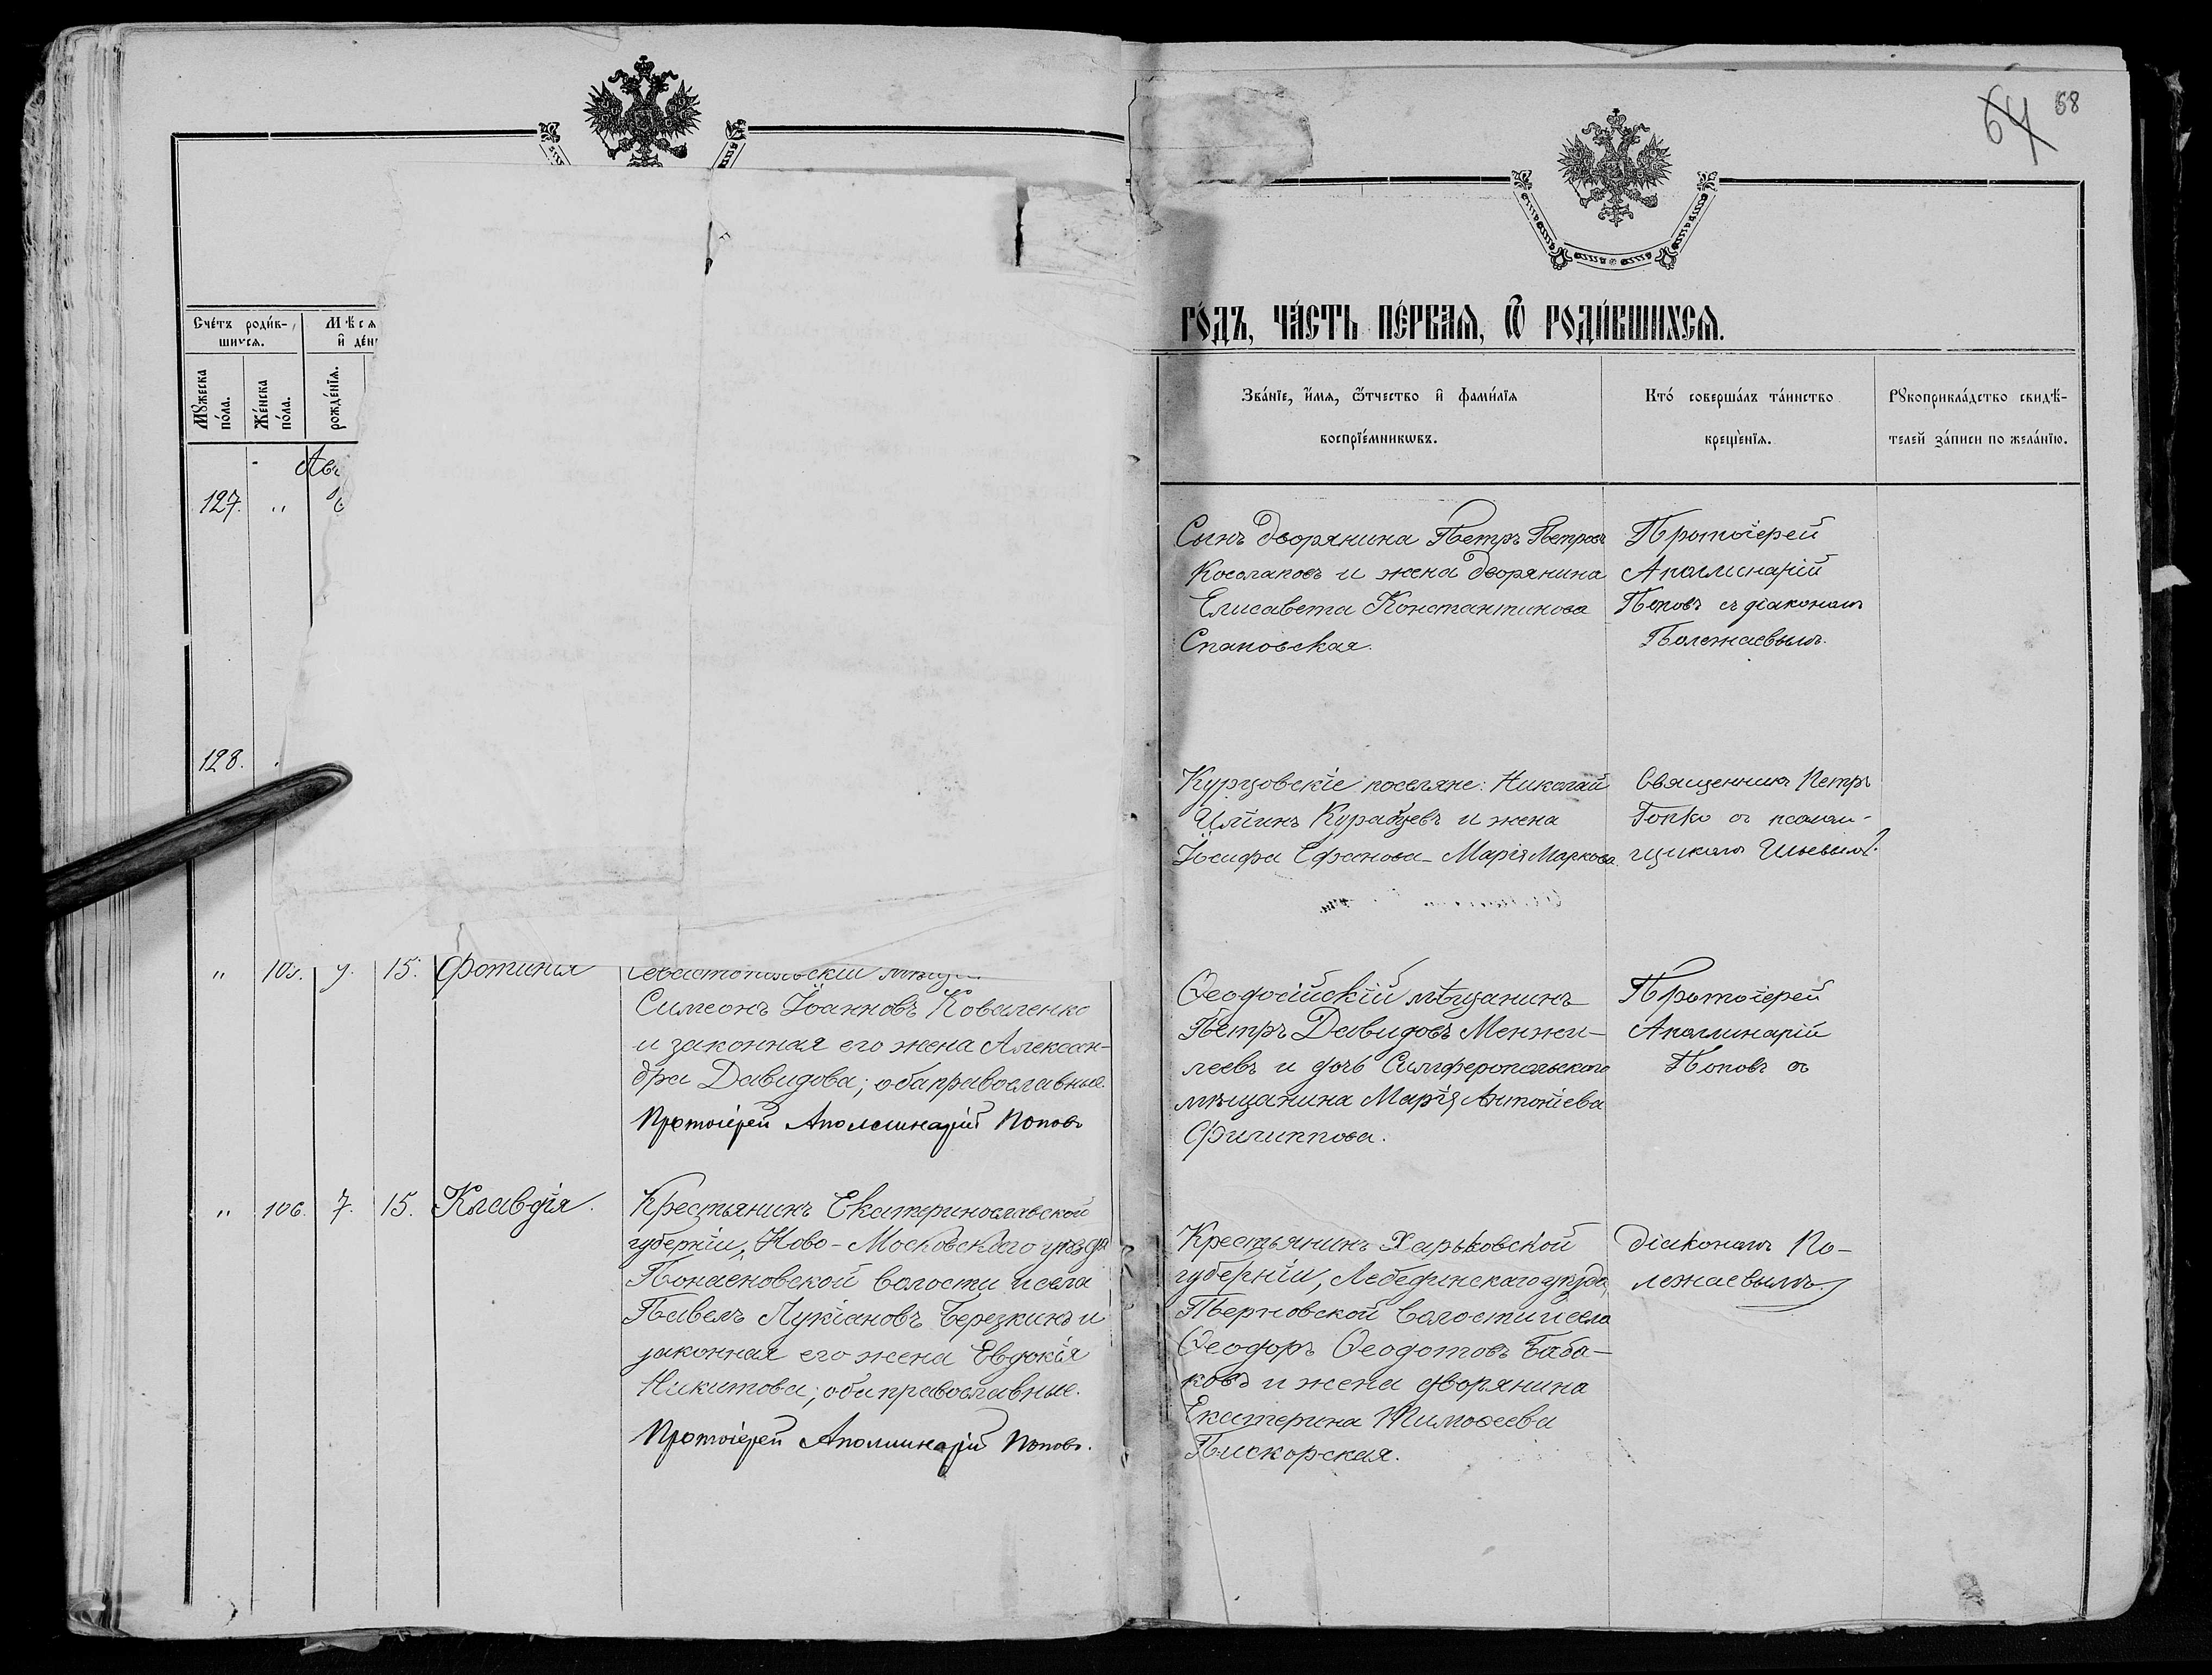 64 68
Счетъ родив-
шихся.
Мужеска
пола.
Женска
пола.
рожденїя.
127. "
128.
" 105. 15. Фотинія Севастопольскій
Симеонъ Іоанновъ Коваленко
и законная его жена Алексан-
дра Давидова; оба православные.
Протоіерей Аполлинарій Поповъ
" 106. 7. 15. Клавдія. Крестьянинъ Екатеринославской
губерніи, Ново-Московскаго уѣзда
волости и села
Павелъ Лукіановъ Березкинъ и
законная его жена Евдокія
Никитова; оба православные.
Протоіерей Аполлинарій Поповъ.
годъ, часть первая, ѿ родившихся.
Званїе, имя, ѿтчество и фамилїя
воспрїемниковъ.
Кто совершалъ таинство
крещенїя.
Рукоприкладство свидѣ-
телей записи по желанїю.
Сынъ дворянина Петръ Петровъ
Косолаповъ и жена дворянина
Елисавета Константинова
Спановская.
Протоіерей
Аполлинарій
Поповъ съ діакономъ
Полежаевымъ.
Курцовскіе поселяне: Николай
Иліинъ и жена
Іосифа Ефанова - Марія Маркова.
Священникъ Петръ
Гопко съ псалом-
щикомъ
Ѳеодосійскій мѣщанинъ
Петръ Давидовъ Менжи-
леевъ и дочь Симферопольскаго
мѣщанина Марія Антоніева
Филиппова.
Протоіерей
Аполлинарій
Поповъ съ
Крестьянинъ Харьковской
губерніи, Лебединскаго уѣзда,
волости и села
Ѳеодоръ Ѳеодотовъ Баба-
ковъ и жена дворянина
Екатерина Тимоѳеева
Пискорская.
діакономъ По-
лежаевымъ.